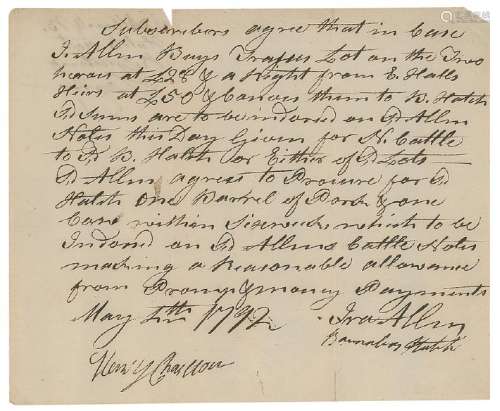 Subscribers agree that in Case
I. Allen Buys Lot on the Two
heroes at £28 & a Right from E. Halls
Heirs at £50 & Conveys them to B. Hatch
Sd Sums are to be indorsd on Sd Allen
Notes this Day Given for N. Cattle
to Sd B. Hatch or Either of Sd Lots
Sd Allen agrees to Procure for Sd
Hatch One Barrel of Pork & one
Cow within Sixweeks which to be
Indorsd on Sd Allens Cattle Notes
making a Reasonable allowance
from Payments
May 1792
Ira Allen
Barnabas Hatch